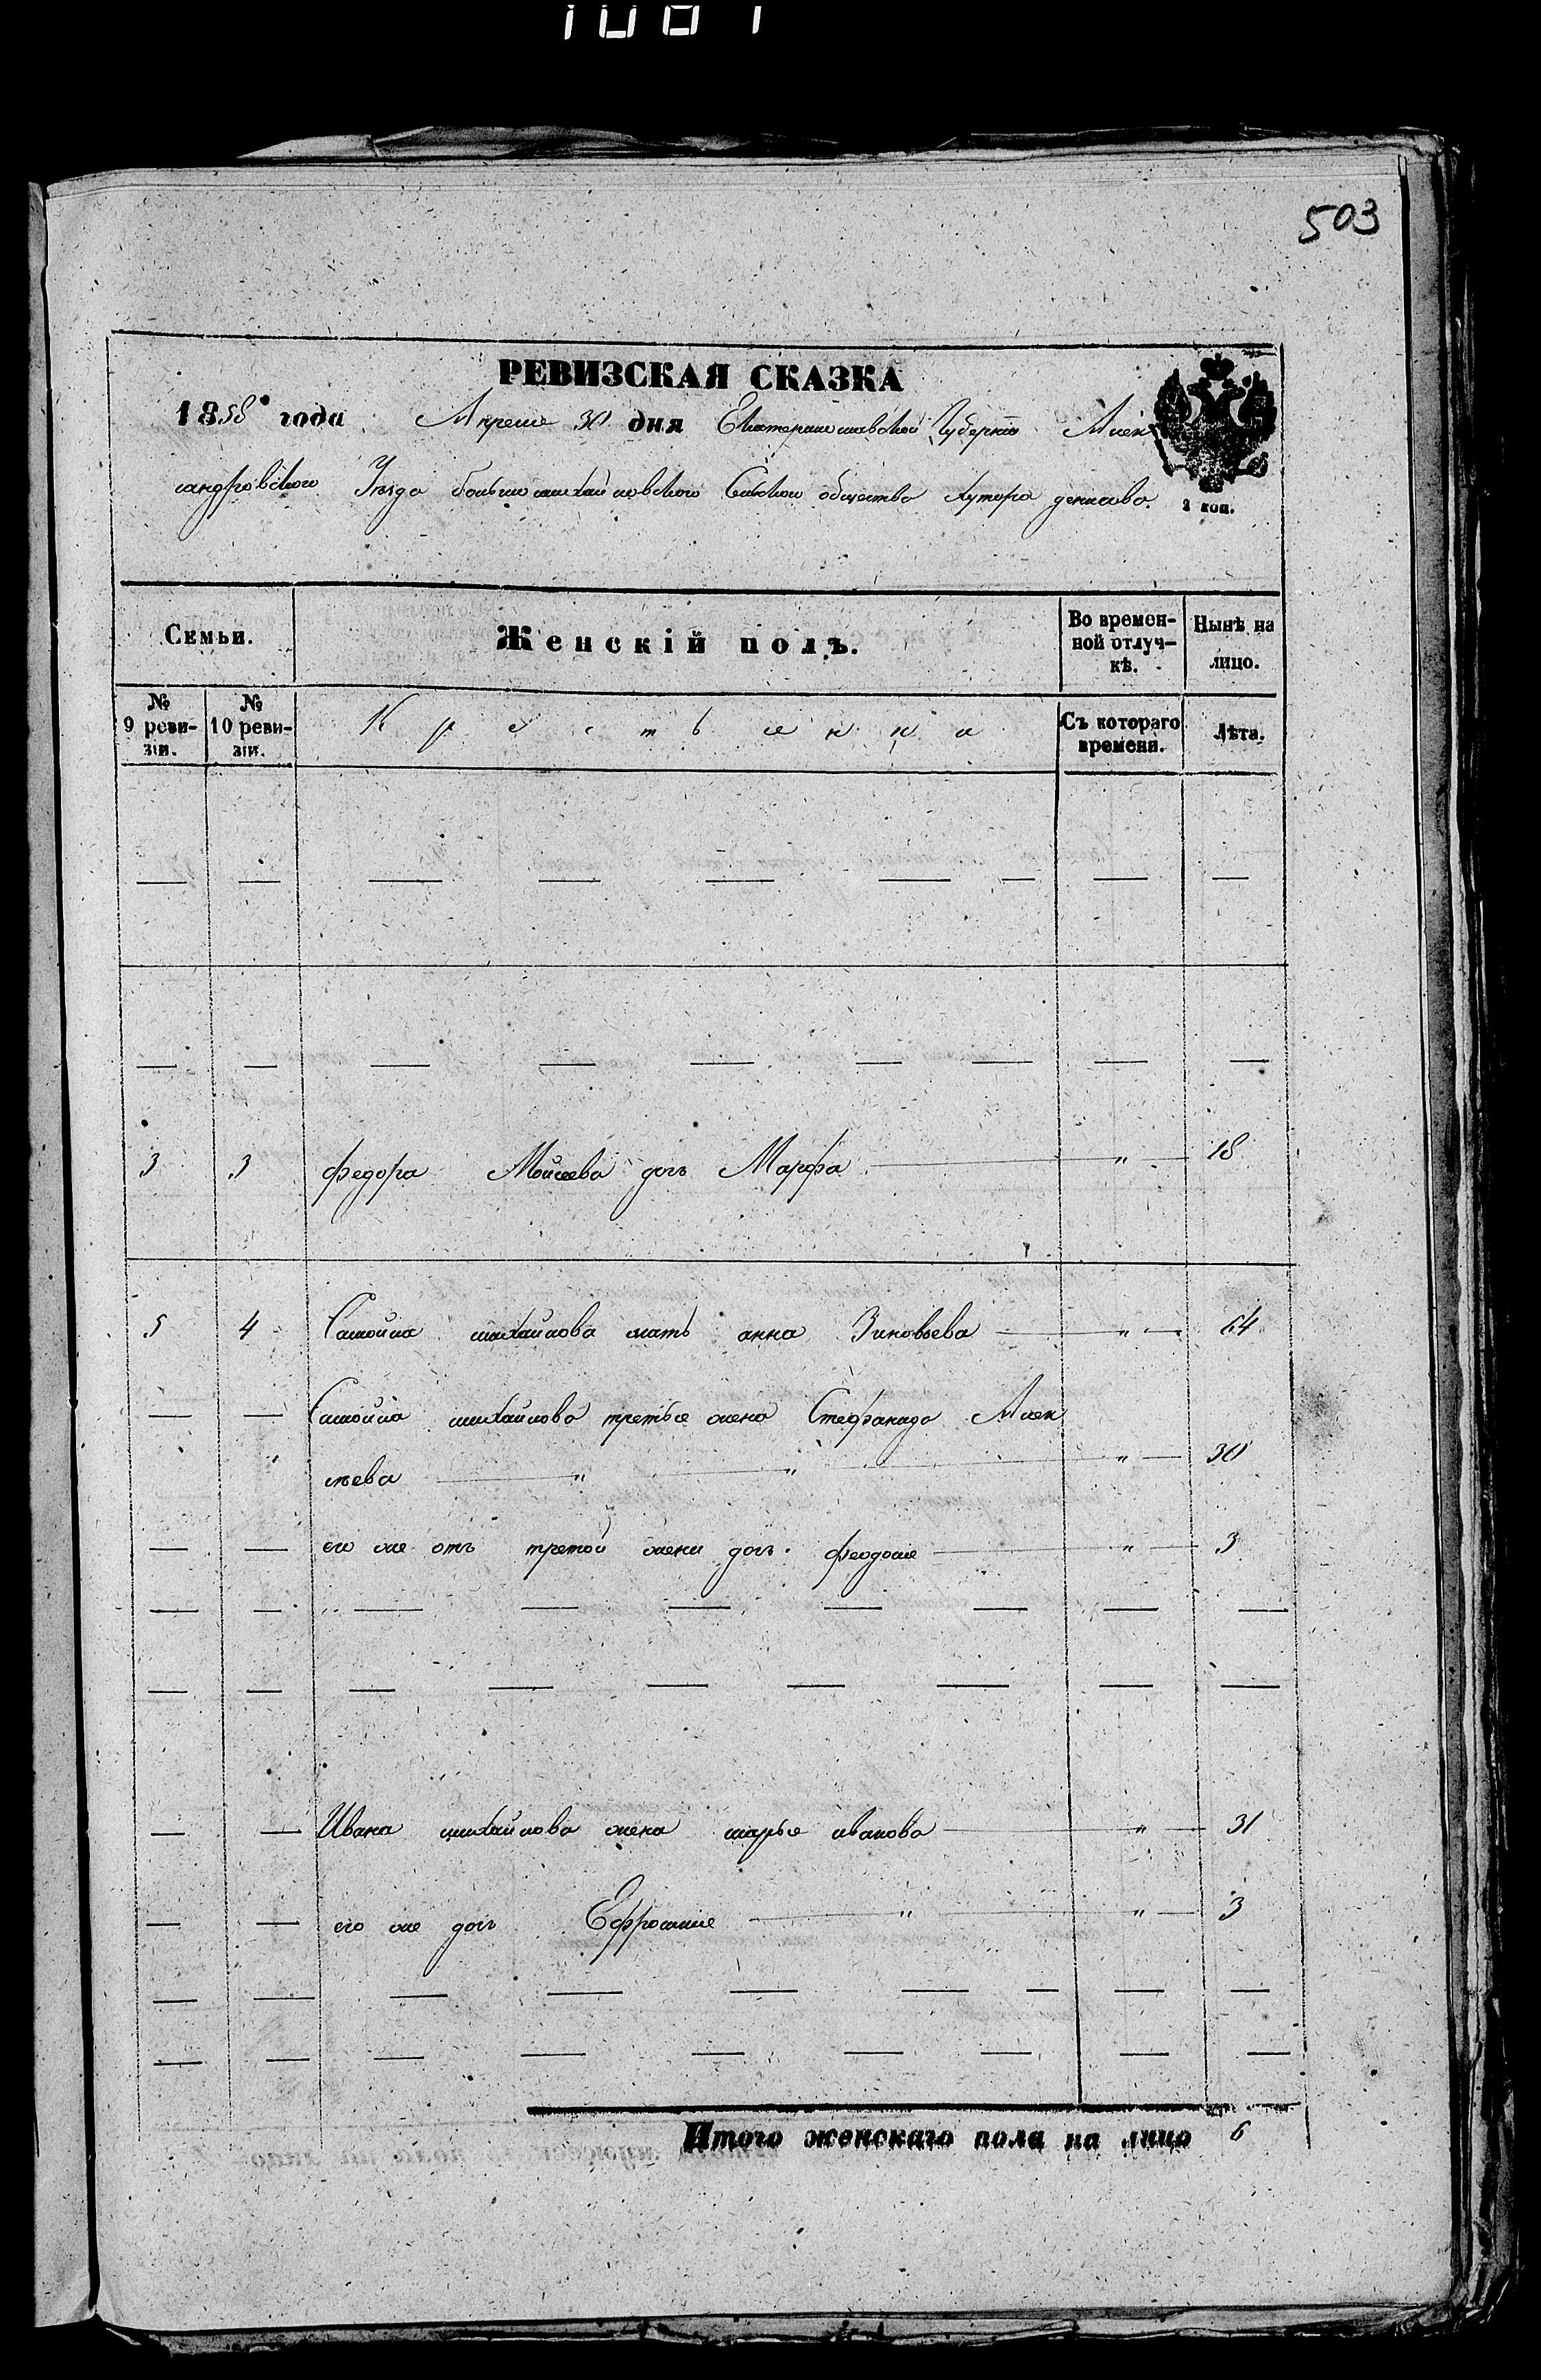 503
РЕВИЗСКАЯ СКАЗКА
1858 года Апреля 30 дня Екатеринославской Губернiи Алек
сандровского Уезда большемихайловского Сельского общества хутора денисова.
2 коп.
Семьи.
Женскiй полъ.
Во времен-
ной отлуч-
кѣ.
Нынѣ на
лицо.
№
9 реви-
зiи.
№
10 реви-
зiи.
Съ котораго
времени.
Лѣта.
3 3 федора Мойсеева дочь Марфа " 18
5 4 Самойла михайлова мать анна Зиновьева " 64
Самойла михайлова третья жена Стефанида Алек
сѣева " " " 30
его же отъ третой жены дочь феодосия " 3
Ивана михайлова жена марья иванова " 31
его же дочь Ефросиния " " 3
Итого женскаго пола на лицо 6